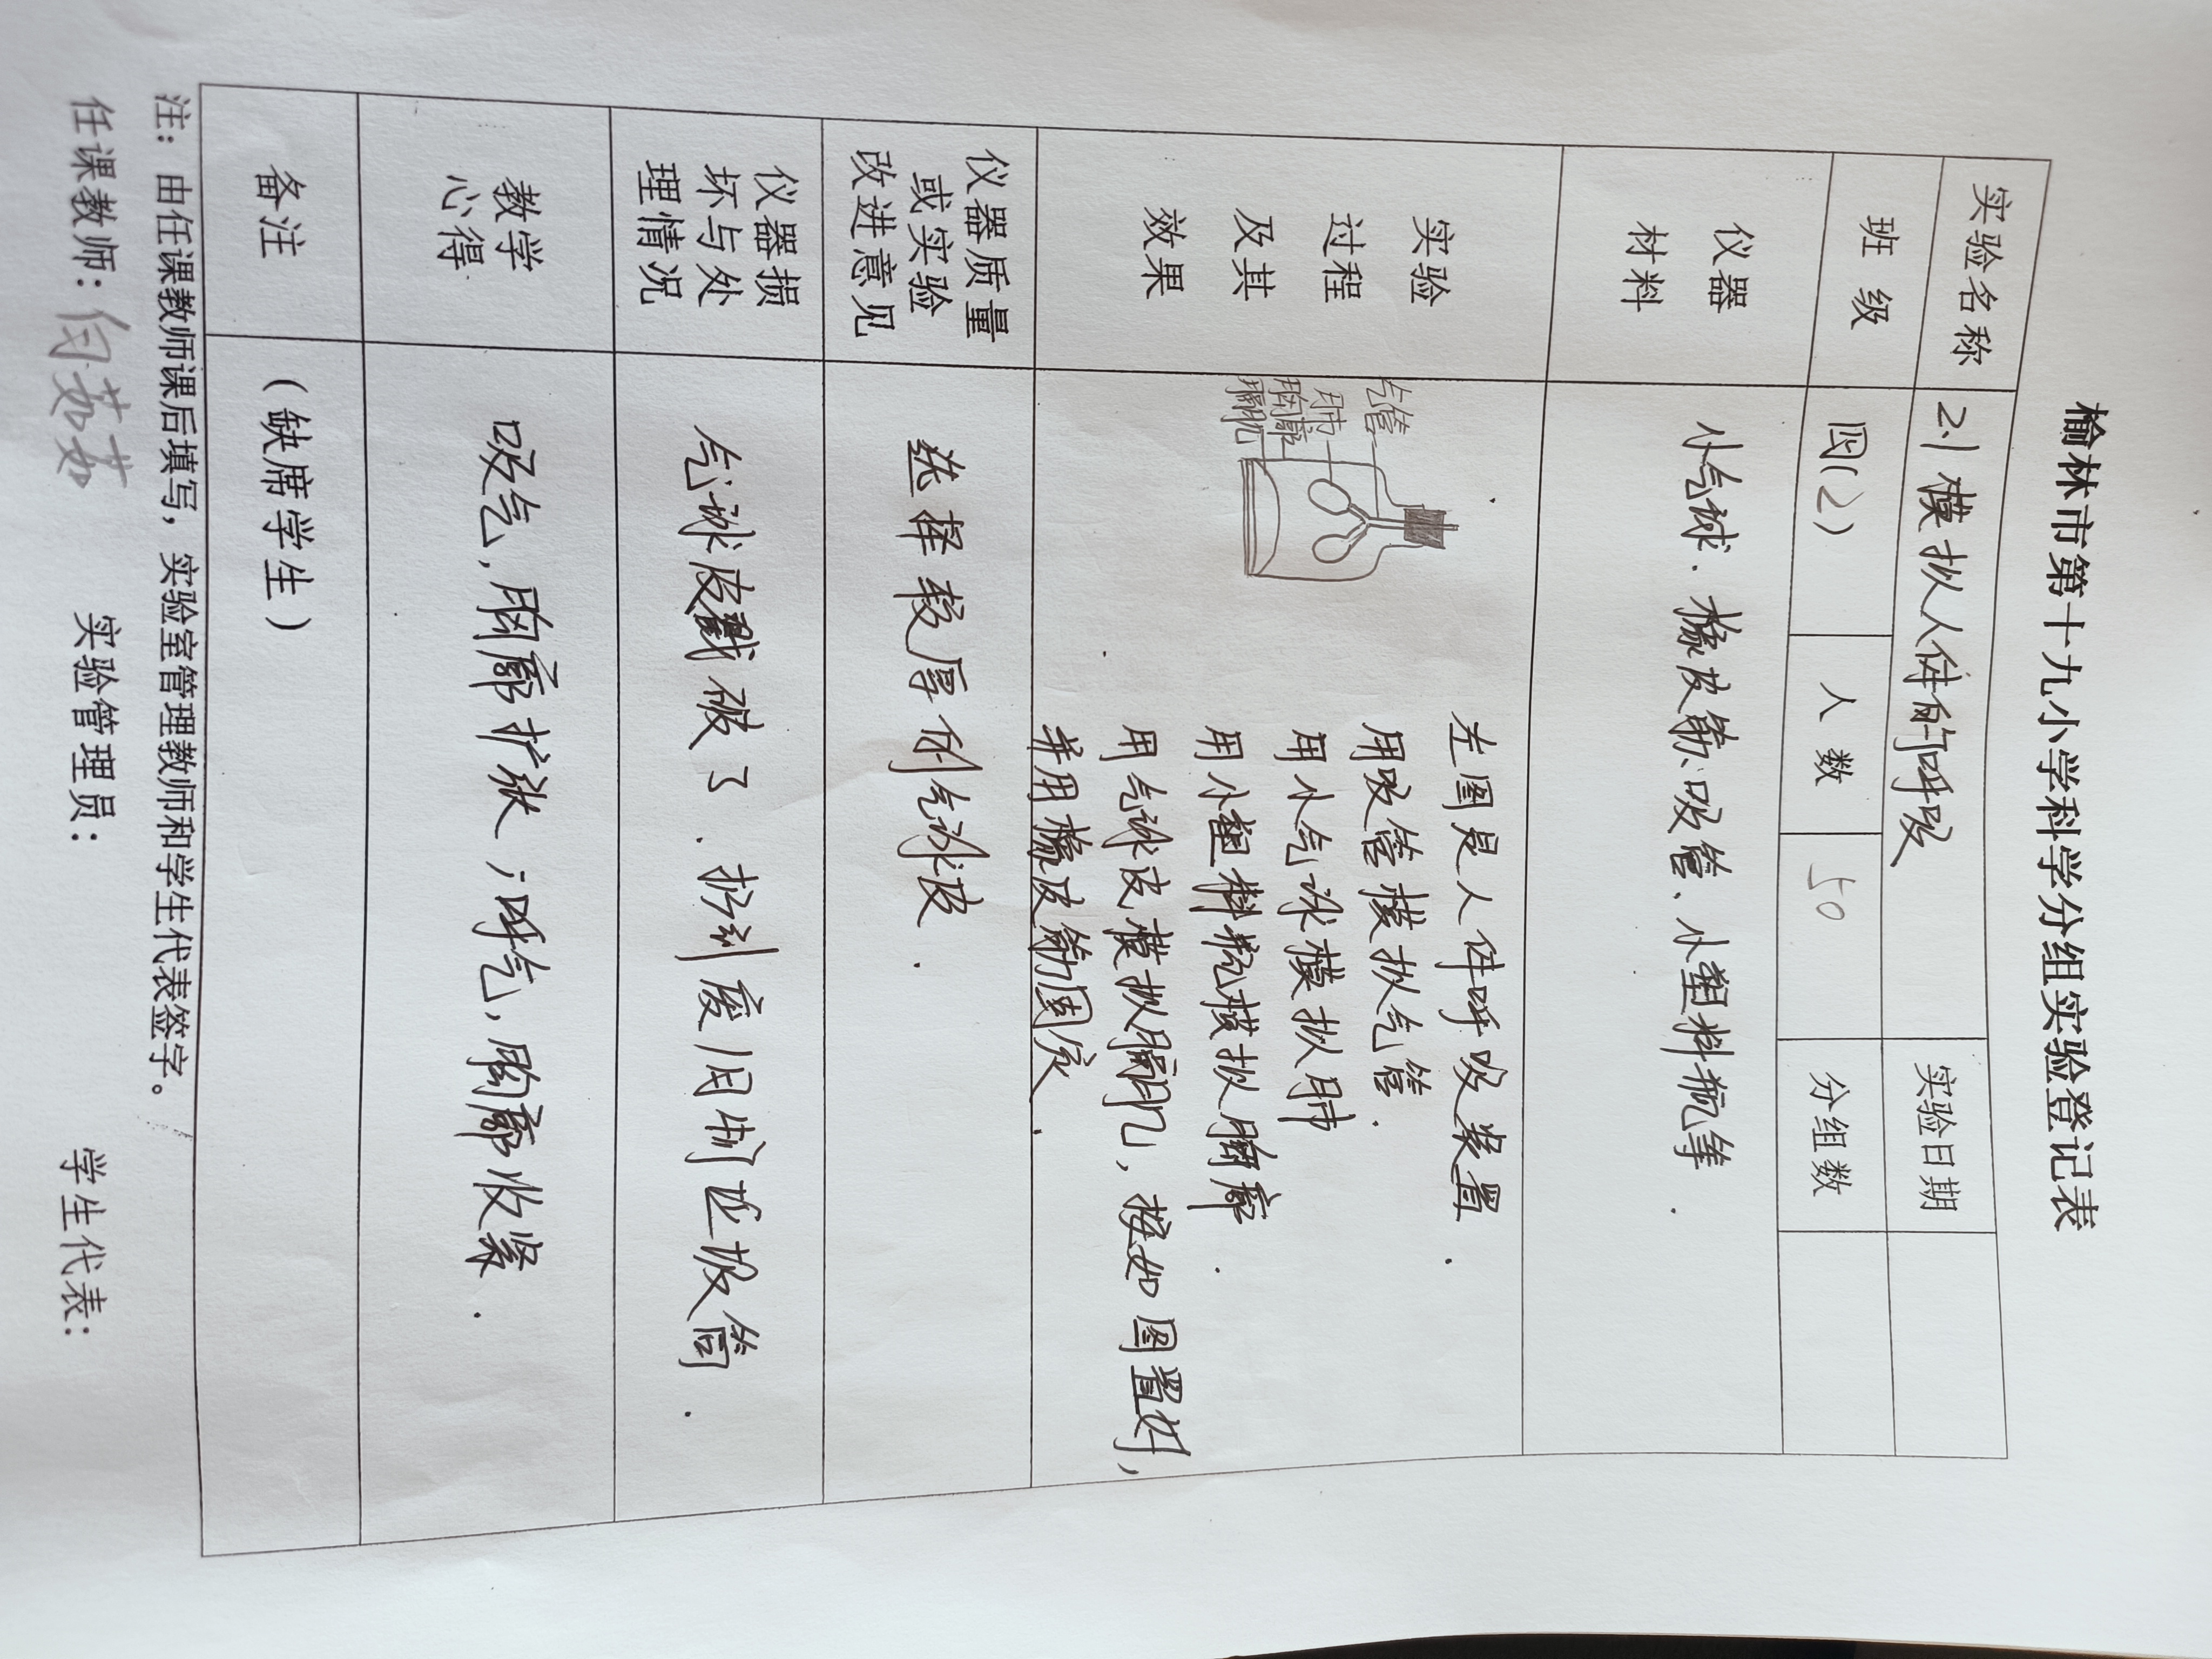 榆林市第十九小学科学分组实验登记表
实验名称 2.1模拟人体的呼吸 实验日期
班 级 四(2) 人 数 50 分组数
仪器
材料
小气球、橡皮筋、吸管、小塑料瓶等.
实验
过程
及其
效果
气管
肺
胸廓
膈肌
左图是人体呼吸装置.
用吸管模拟气管.
用小气球模拟肺
用小塑料瓶模拟胸廓.
用气球皮模拟膈肌,按如图置好,
并用橡皮筋固定.
仪器质量
或实验
改进意见
选择较厚的气球皮.
仪器损
坏与处
理情况
气球皮戳破了、扔到废旧电池垃圾筒.
教学
心得
吸气,胸廓扩张;呼气,胸廓收紧.
备注
(缺席学生)
注:由任课教师课后填写,实验室管理教师和学生代表签字。
任课教师: 实验管理员: 学生代表: